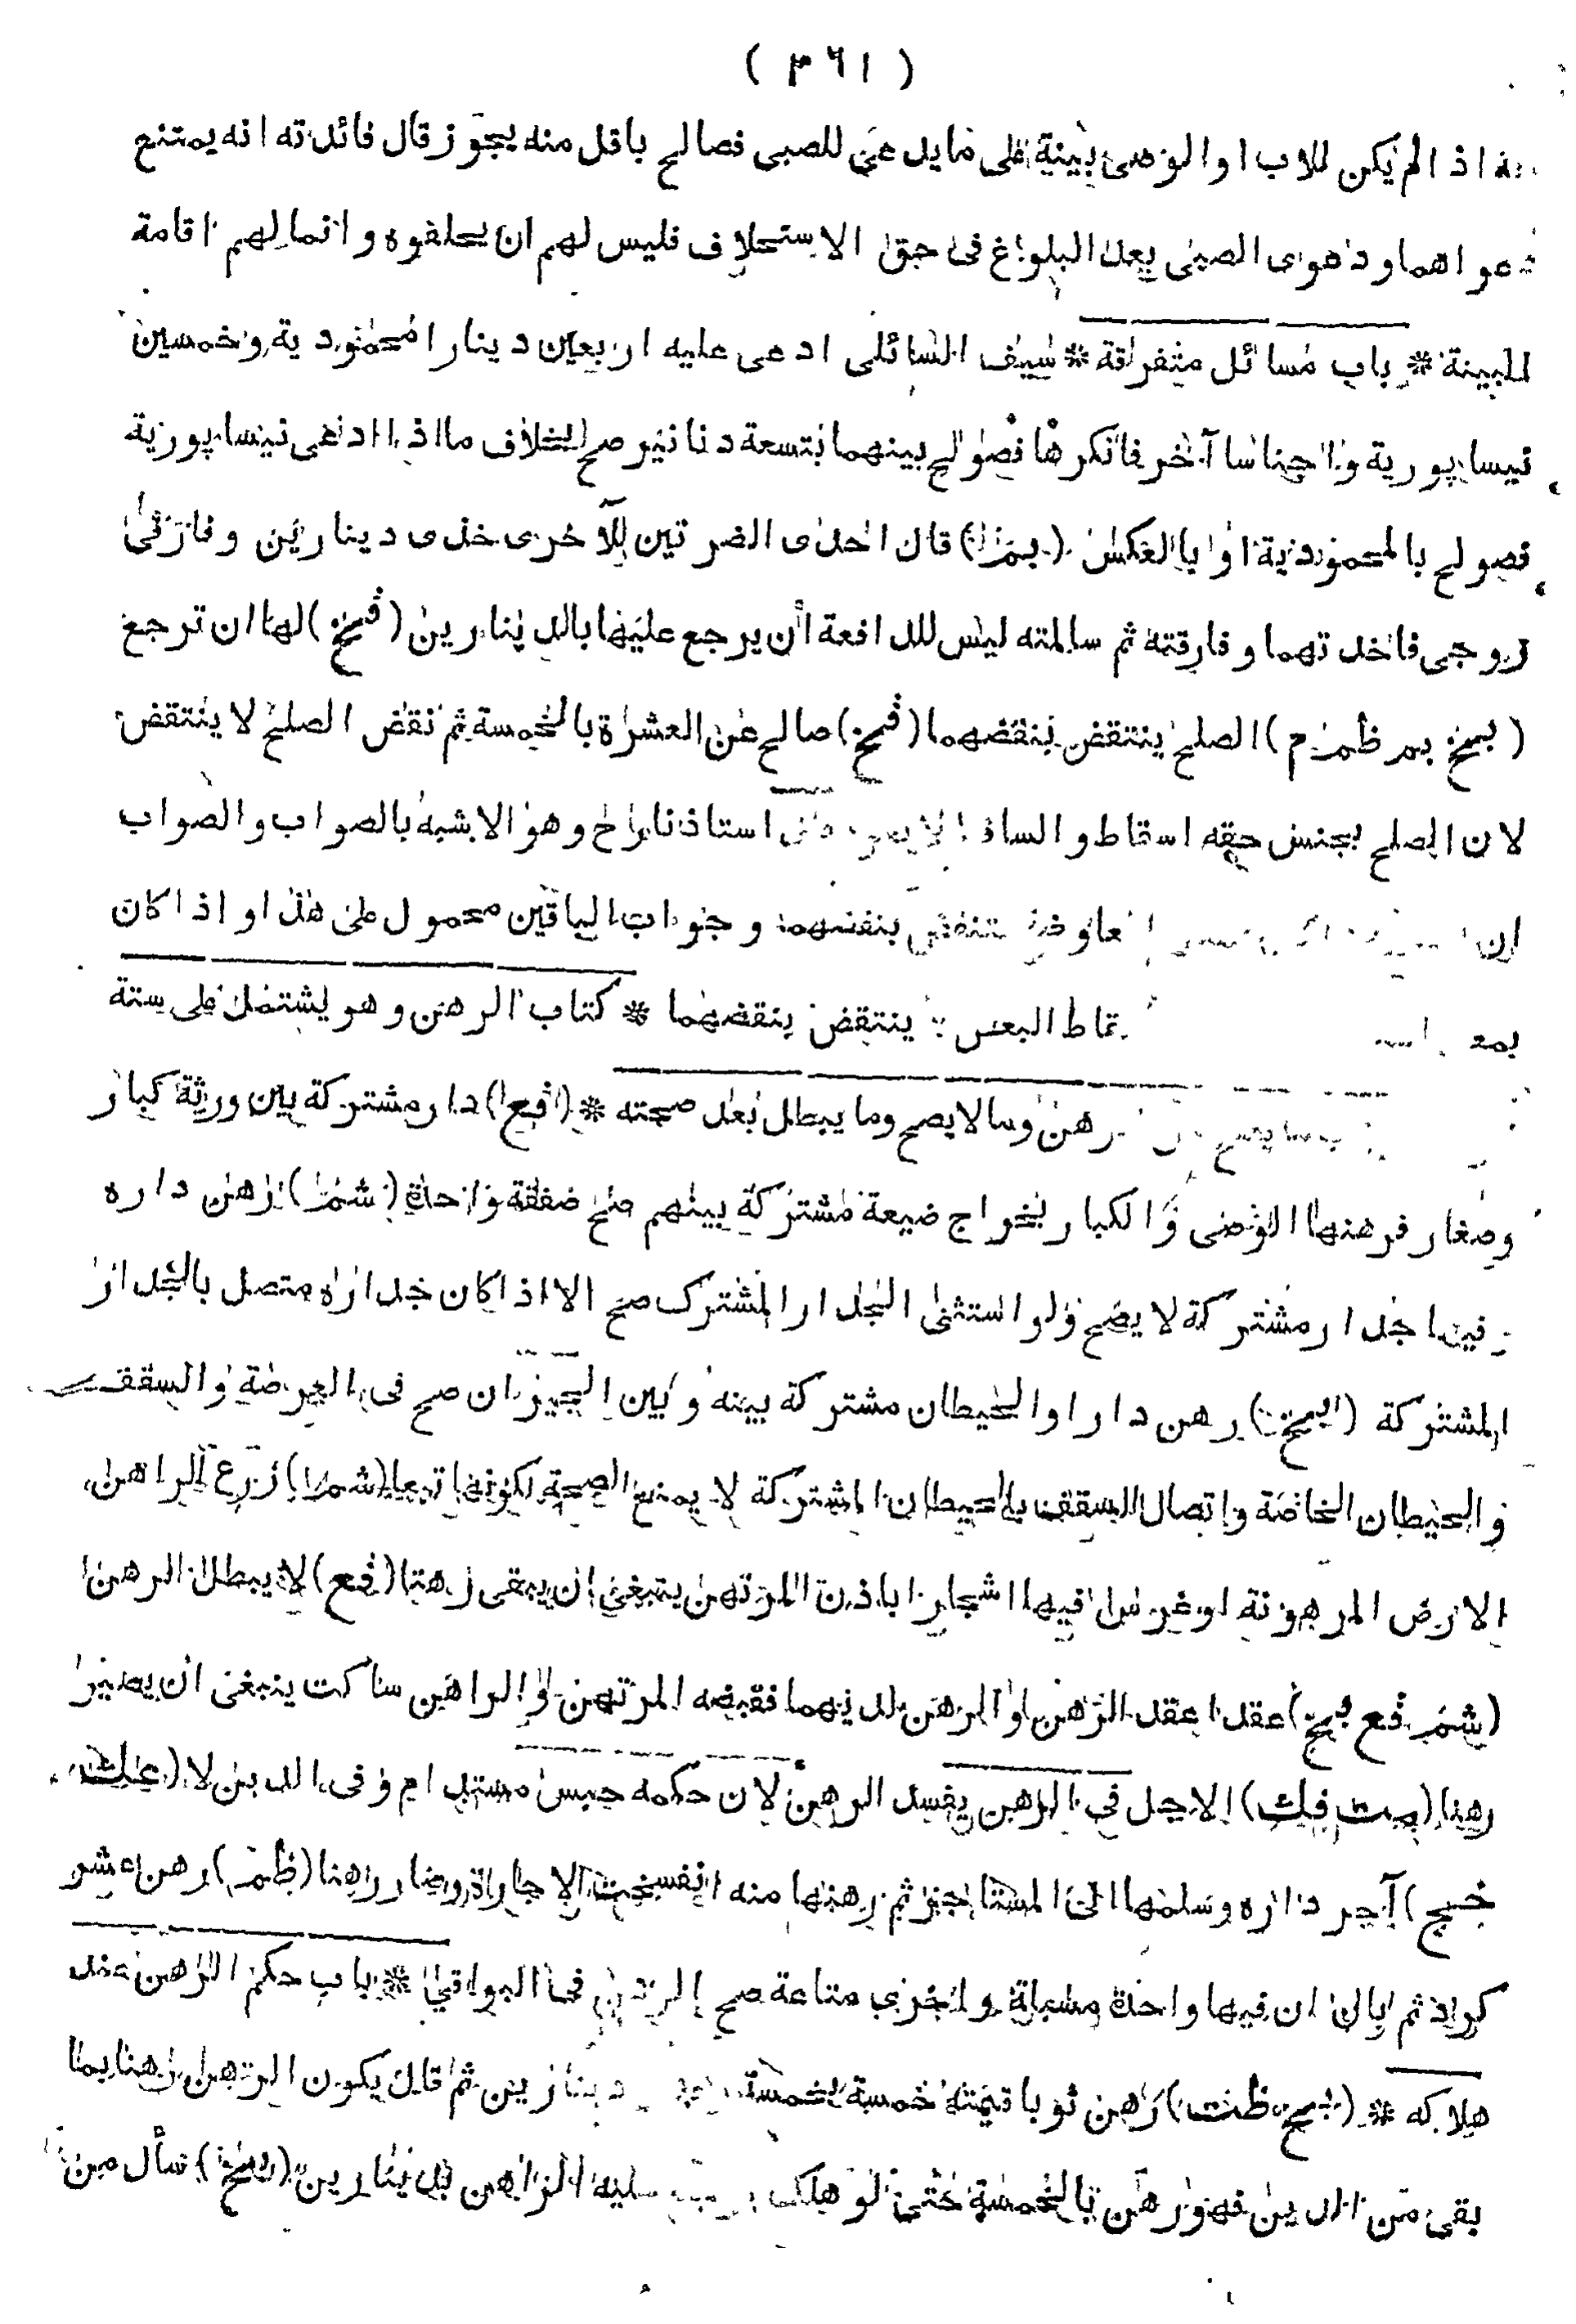 ( ٣٦١ )
اذا لم يكن للاب او الوصى بينة على ما يدعى للصبى فصالح باقل منه يجوز قال فائدته انه يمتنع
دعواهما ودعوى الصبى بعد البلوغ فى حق الاستحلاف فليس لهم ان يحلفوه وانما لهم اقامة
البينة * باب مسائل متفرقة * سيف السائلى ادعى عليه اربعين دينارا محمودية وخمسين
نيسابورية واجناسا آخر فانكرها فصولح بينهما بتسعة دنانير صح بخلاف ما اذا ادعى نيسابورية
فصولح بالمحمودية او بالعكس ( ) قال احدى الضرتين للآخرى خذى دينارين وفارقى
زوجى فاخذتهما وفارقته ثم سالمته ليس للدافعة أن يرجع عليها بالدينارين (فمخ) لها ان ترجع
(بمخ بمر ظمر م) الصلح ينتقض بنقضهما (فمخ) صالح عن العشرة بالخمسة ثم نقض الصلح لا ينتقض
لان الصلح بجنس حقه اسقاط والساقط لا يعود استاذنا رح وهو الاشبه بالصواب والصواب
ان بنقضهما وجواب الباقين محمول على هذا او اذا كان
اسقاط البعض ينتقض بنقضهما * كتاب الرهن وهو يشتمل على ستة
وما لا يصح وما يبطل بعد صحته * (فع) دار مشتركة بين ورثة كبار
وصغار فرهنها الوصى والكبار بخراج ضيعة مشتركة بينهم صح صفقة واحدة ( ) رهن داره
وفيها جدار مشتركة لا يصح ولو استثنى الجدار المشترك صح الا اذا كان جداره متصل بالجدار
المشتركة ( ) رهن دارا والحيطان مشتركة بينه وبين الجيران صح فى العرصة والسقف
والحيطان الخاصة واتصال السقف بالحيطان المشتركة لا يمنع الصحة لكونها تبعا ( ) زرع الراهن
الارض المرهونة او غرس فيها اشجارا باذن المرتهن ينبغى ان يبقى رهنا (فع) لا يبطل الرهن
(شمر فع بمخ) عقدا عقد الرهن او الرهن لدينهما فقبضه المرتهن والراهن ساكت ينبغى ان يصير
رهنا ( ) الاجل فى الرهن يفسد الرهن لان حكمه حبس مستدام وفى الدين لا (عك
) آجر داره وسلمها الى المستأجر ثم رهنها منه انفسخت الاجارة وصار رهنا (ظمر) رهن عشر
كراذ ثم ان فيها واحدة مشاعة صح الرهن فى البواقى * باب حكم الرهن عند
هلاكه * ( ) رهن ثوبا قيمته خمسة بخمسة دينارين ثم قال يكون الرهن رهنا بما
بقى من الدين فهو رهن بالخمسة حتى لو هلك عليه الراهن بدينارين (بمخ) سأل من